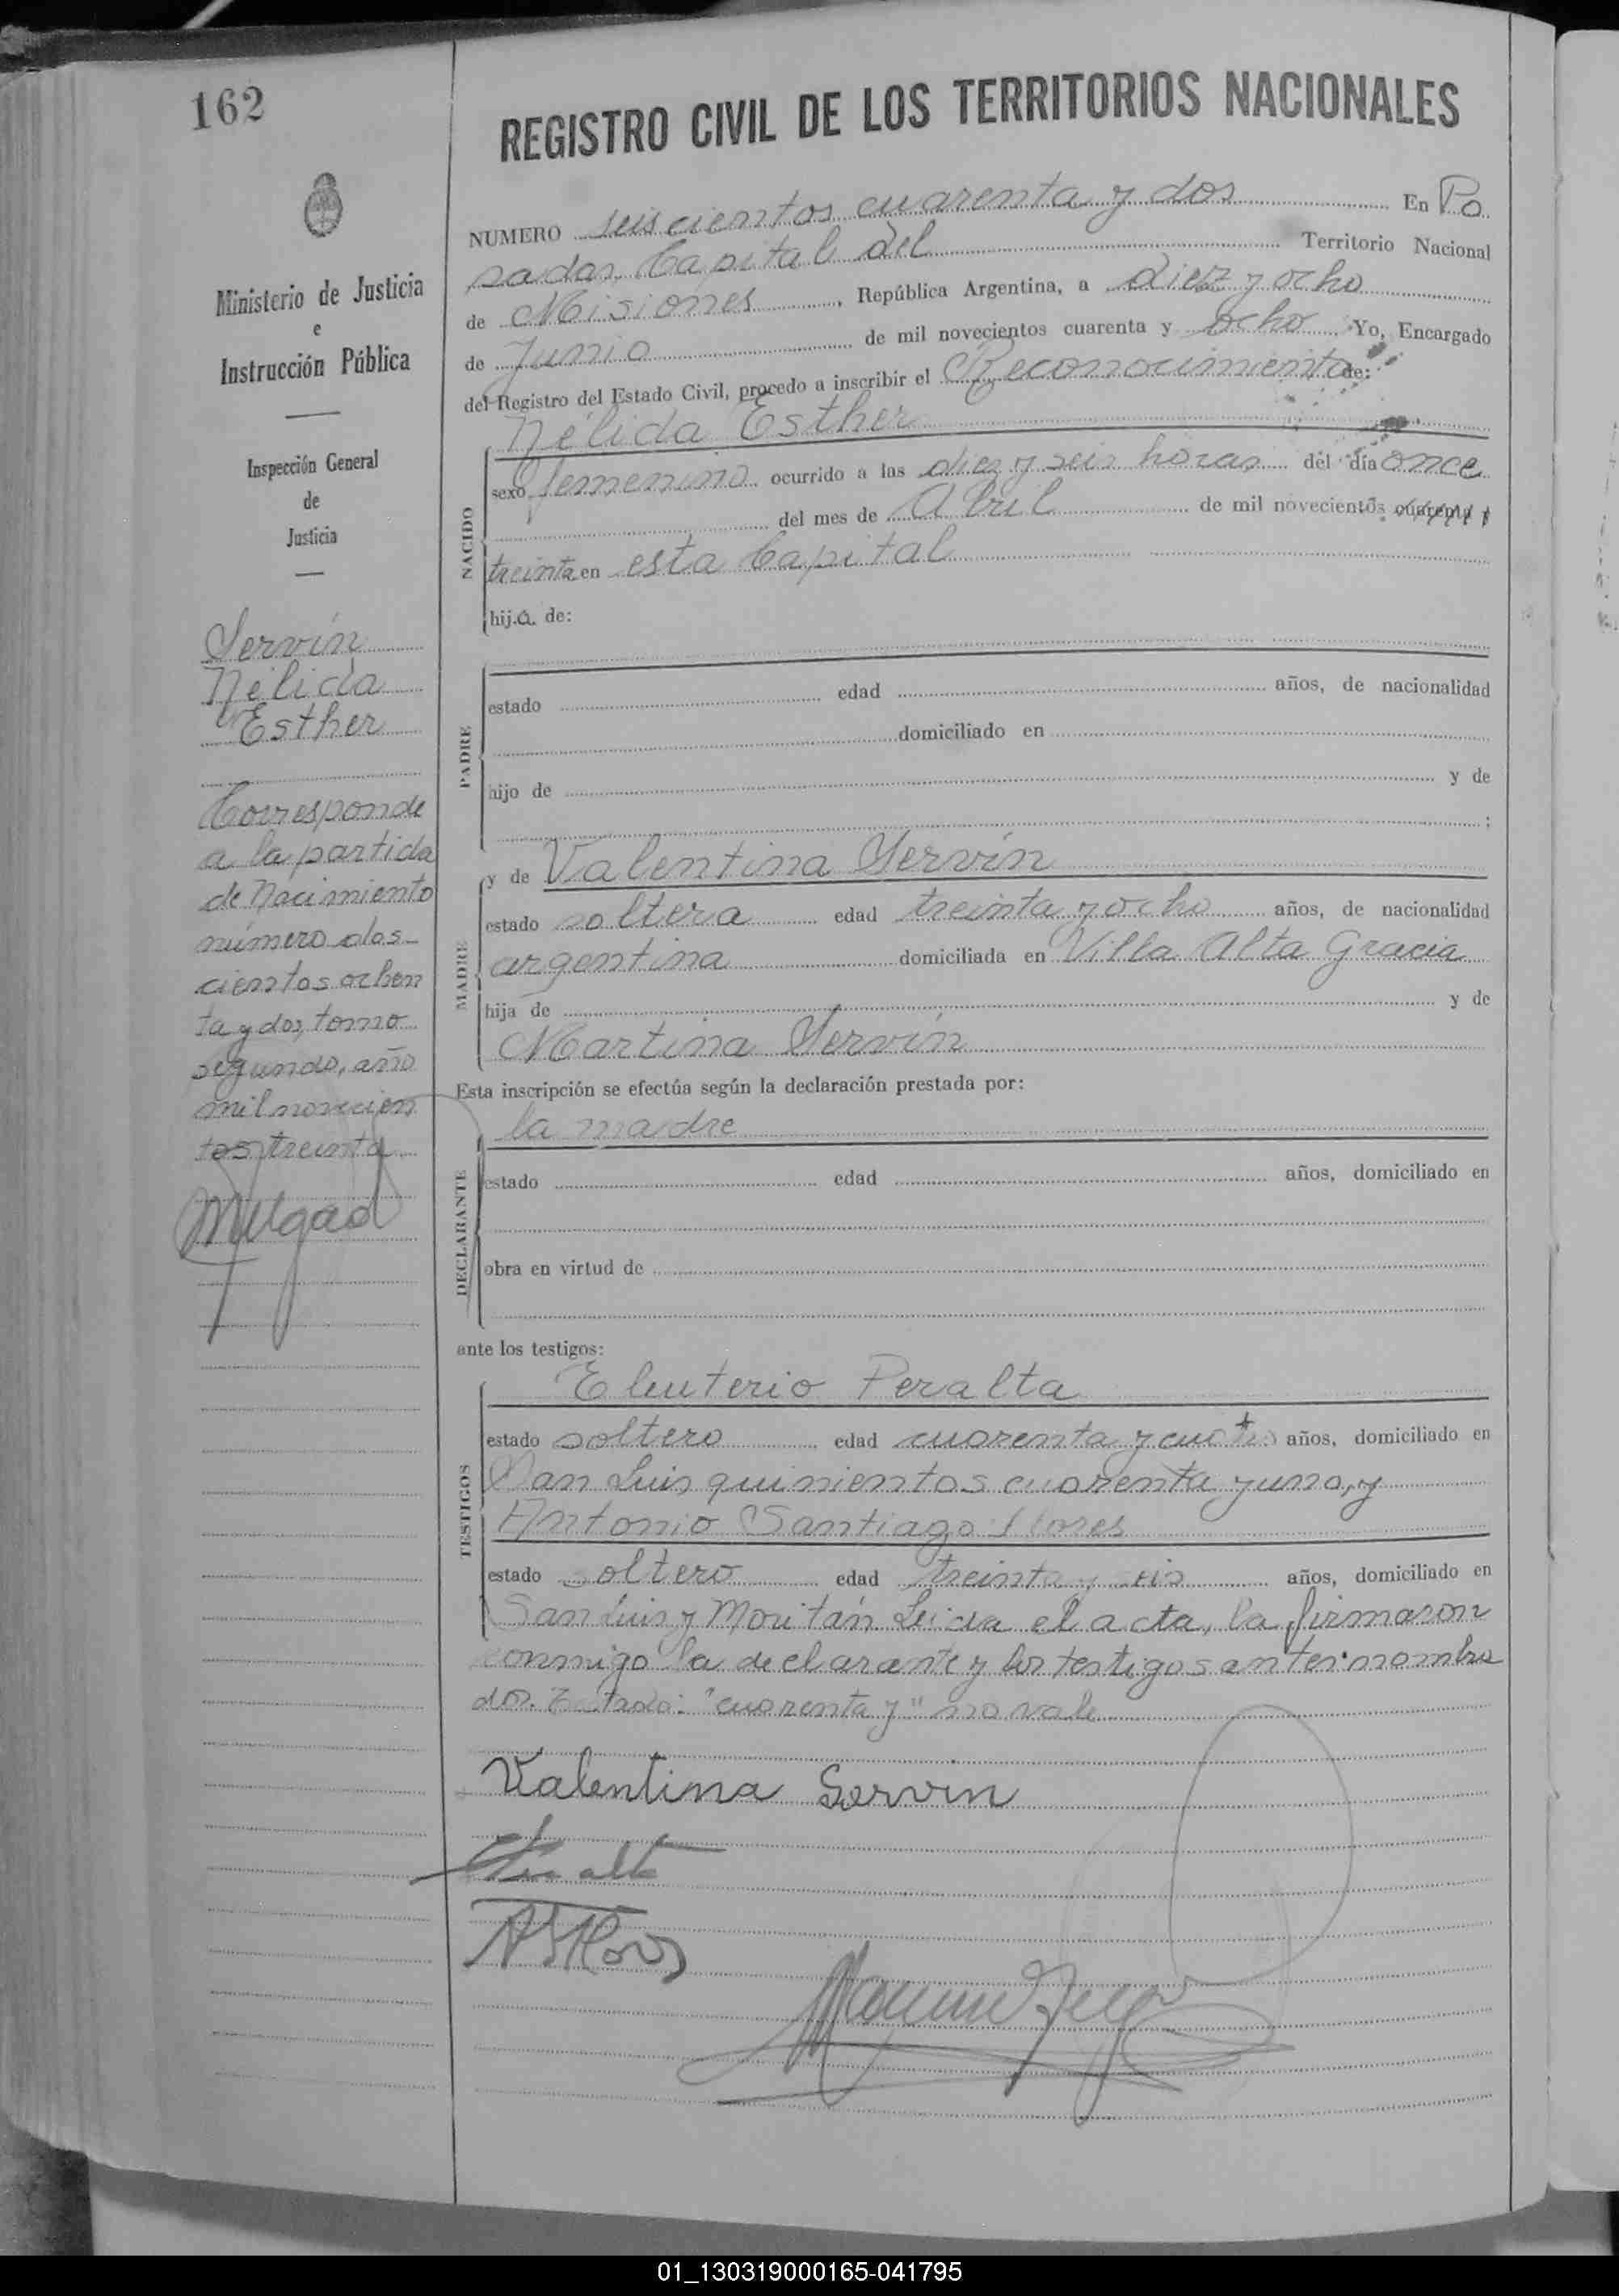 162
REGISTRO CIVIL DE LOS TERRITORIOS NACIONALES
Ministerio de Justicia
e
Instrucción Pública
Inspección General
de
Justicia
Servín
Nélida
Esther
Corresponde
a la partida
de Nacimiento
número dos-
cientos ochen
ta y dos, tomo
segundo, año
mil novecien
tos treinta
NUMERO seiscientos cuarenta y dos En Po
sadas, Capital del Territorio Nacional
de Misiones, República Argentina, a diez y ocho
de Junio de mil novecientos cuarenta y ocho Yo, Encargado
del Registro del Estado Civil, procedo a inscribir el Reconocimiento de:
Nélida Esther
NACIDO
sexo femenino ocurrido a las diez y seis horas del día once
del mes de Abril de mil novecientos cuarenta y
treinta en esta Capital
hija de:
PADRE
estado edad años, de nacionalidad
domiciliado en
hijo de y de
;
MADRE
y de Valentina Servín
estado soltera edad treinta y ocho años, de nacionalidad
argentina domiciliada en Villa Alta Gracia
hija de y de
Martina Servín
Esta inscripción se efectúa según la declaración prestada por:
DECLARANTE
la madre
estado edad años, domiciliado en
obra en virtud de
ante los testigos:
TESTIGOS
Eleuterio Peralta
estado soltero edad cuarenta y cuatro años, domiciliado en
San Luis quinientos cuarenta y uno, y
Antonio Santiago Flores
estado soltero edad treinta y seis años, domiciliado en
San Luis y Moritán. Leida el acta, la firmaron
conmigo la declarante y los testigos antes nombra
dos. Testado: "cuarenta y" no vale
Valentina Servin
Peralta
ASFlores
01_130319000165-041795